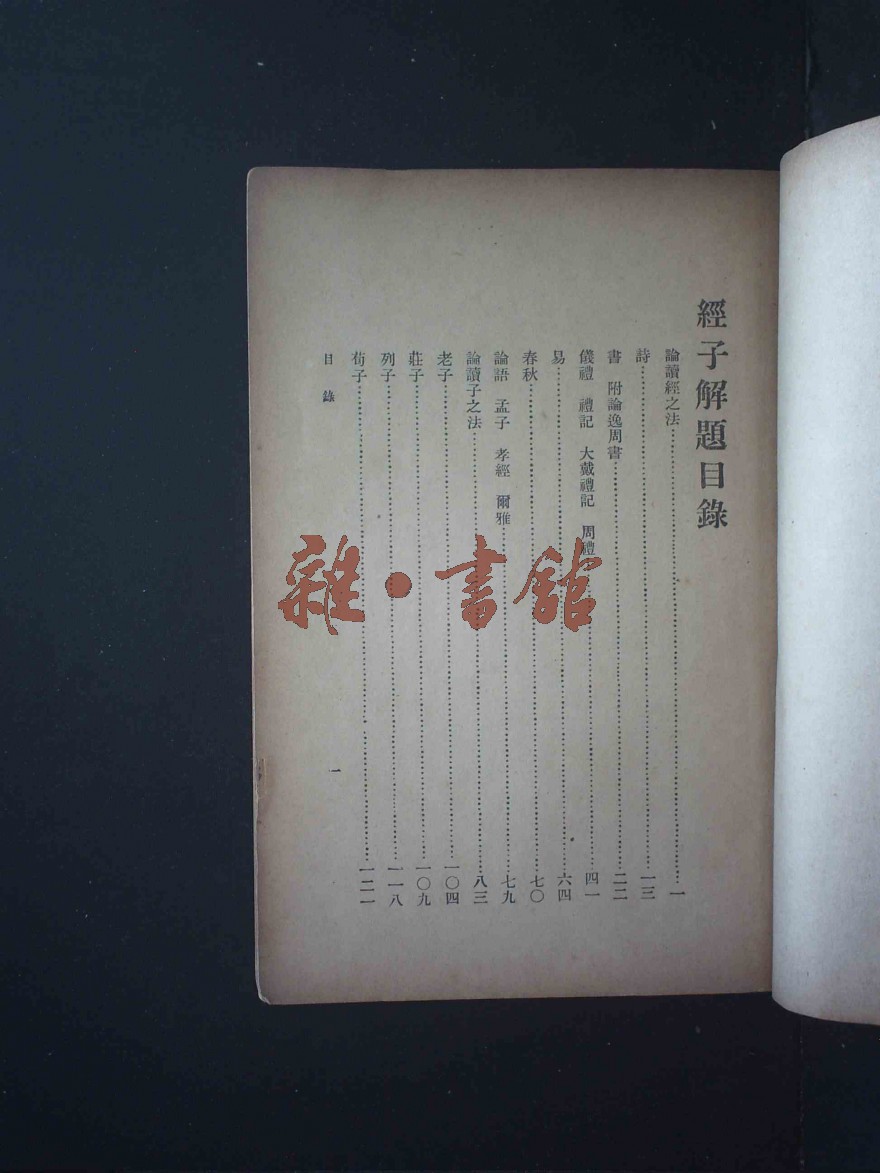 經子解題目錄
論讀經之法……一
詩……一三
書 附論逸周書……二二
儀禮 禮記 大戴禮記 周禮……四一
易……六四
春秋……七〇
論語 孟子 孝經 爾雅……七九
論讀子之法……八三
老子……一〇四
莊子……一〇九
列子……一一八
荀子……一二一
目錄
一
雜·書館